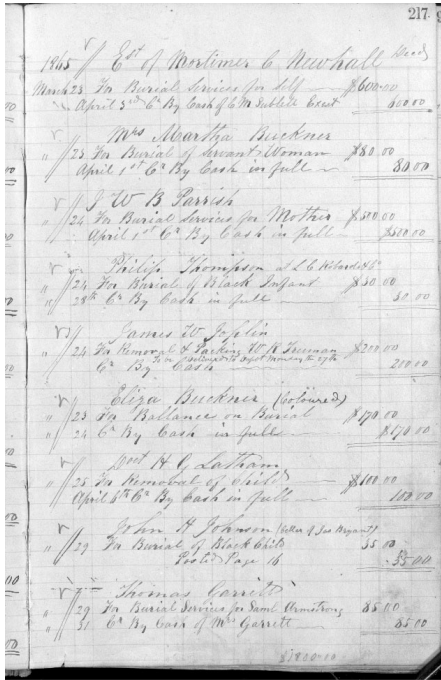 217
1865 Est of Mortimer C Newhall Decd
March 23 For Burial Services for Self $600.00
April 3rd Cr By Cash of C M Sublett Exect 600.00
Mrs Martha Buckner
" 23 For Burial of Servant Woman $80.00
April 1st Cr By Cash in full 80.00
J W B Parrish
" 24 For Burial Services for Mother $500.00
April 1st Cr By Cash in full $500.00
Philip Thompson at
" 24 For Burial of Black Infant $50.00
" 28th Cr By Cash in full 50.00
James W Joplin
" 24 For Removal & Packing W R Freeman $200.00
to Depot Monday 27th
Cr By Cash 200.00
Eliza Buckner (Coloured)
" 23 For Ballance on Burial $170.00
" 24 Cr By Cash in full $170.00
Doct H G Latham
" 25 For Removal of Child $100.00
April 6th Cr By Cash in full 100.00
John H Johnson ( of Jas Bryant)
" 29 For Burial of Black Child 55.00
Posted Page 16 55.00
Thomas Garrett
" 29 For Burial Services for Saml Armstrong 85.00
" 31 Cr By Cash of Mrs Garrett 85.00